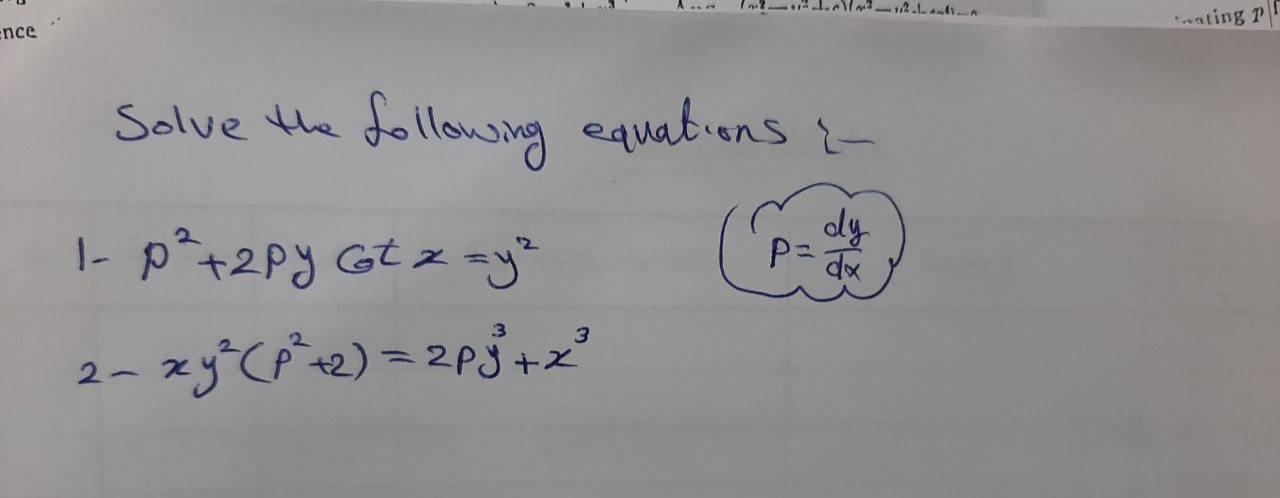 ence
ating P
Solve the following equations :-
1- p²+2py Cot x = y²
(p = dy/dx)
2- xy²(p²+2) = 2py³+x³